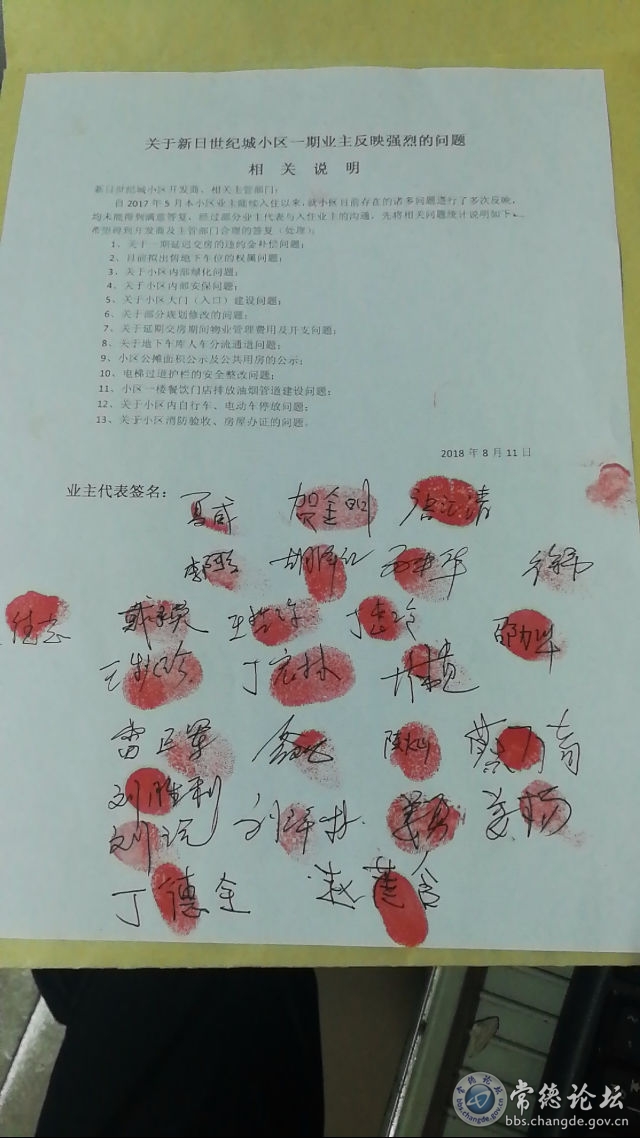 关于新日世纪城小区一期业主反映强烈的问题
相关说明
新日世纪城小区开发商、相关主管部门：
自2017年5月本小区业主陆续入住以来，就小区目前存在的诸多问题进行了多次反映，
均未能得到满意答复，经过部分业主代表与入住业主的沟通，先将相关问题统计说明如下，
希望得到开发商及主管部门合理的答复（处理）：
1、关于一期延迟交房的违约金补偿问题；
2、目前拟出售地下车位的权属问题；
3、关于小区内部绿化问题；
4、关于小区内部安保问题；
5、关于小区大门（入口）建设问题；
6、关于部分规划修改的问题；
7、关于延期交房期间物业管理费用及开支问题；
8、关于地下车库人车分流通道问题；
9、小区公摊面积公示及公共用房的公示；
10、电梯过道护栏的安全整改问题；
11、小区一楼餐饮门店排放油烟管道建设问题；
12、关于小区内自行车、电动车停放问题；
13、关于小区消防验收、房屋办证的问题。
2018年8月11日
业主代表签名：
丁宏林
雷正军 陈灿 蔡乃育
刘胜利
丁德全
常德论坛
bbs.changde.gov.cn